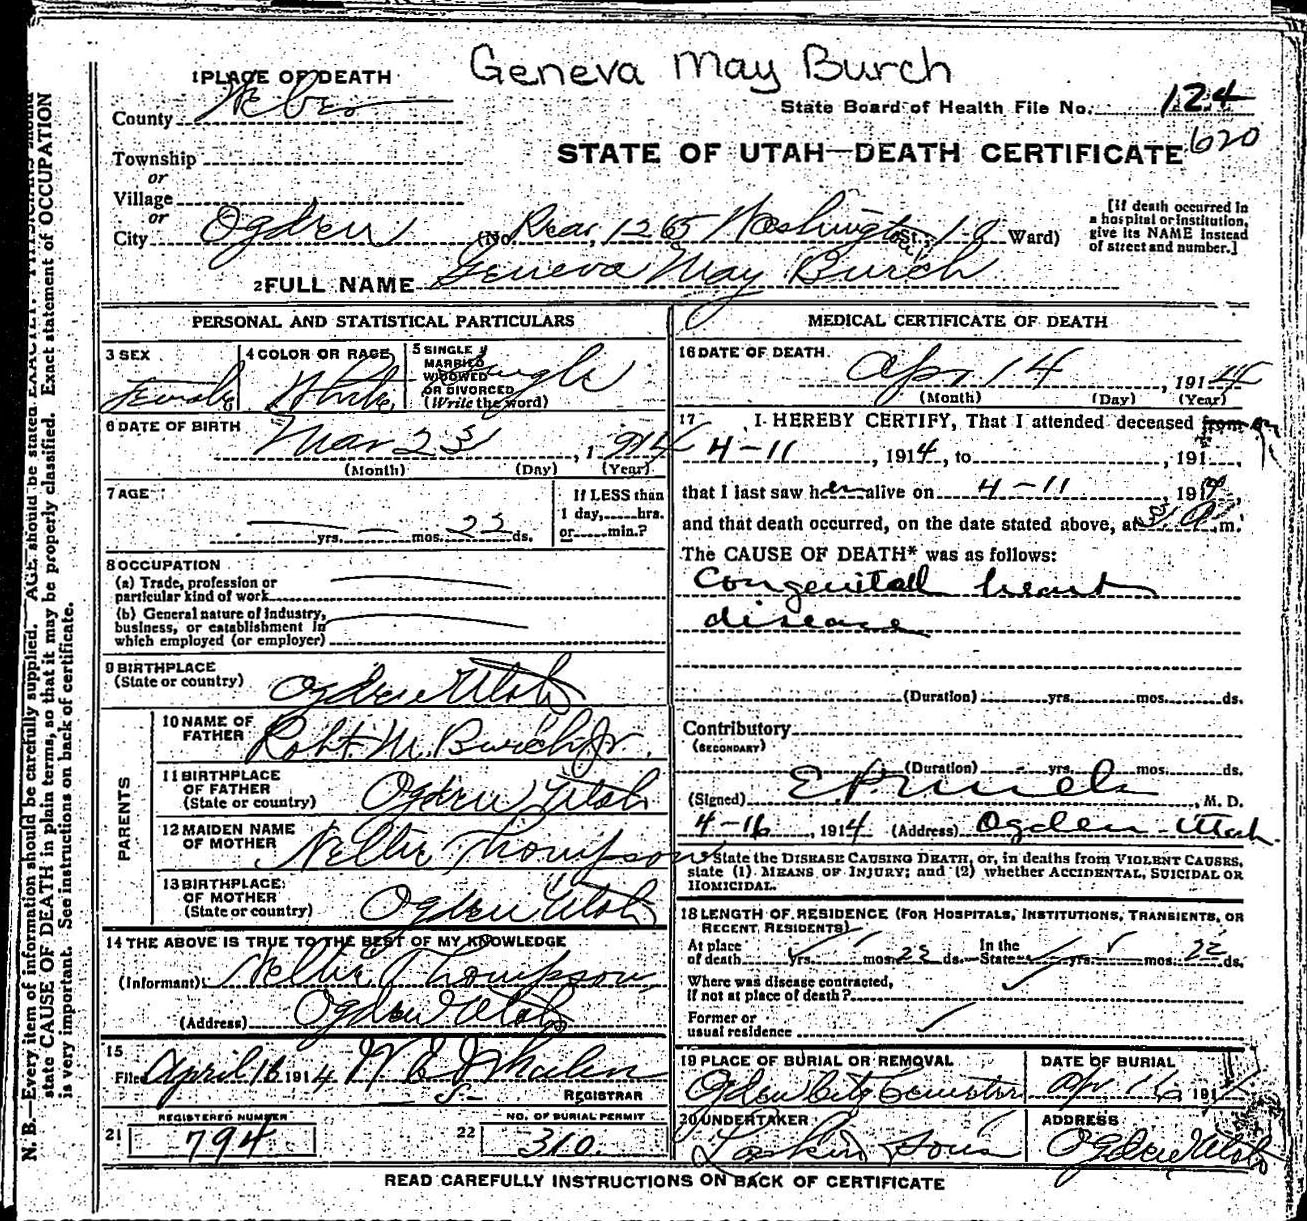 Geneva May Burch
1 PLACE OF DEATH
County Weber
State Board of Health File No. 124
620
Township
or
Village
or
City Ogden (No. Rear, 1265 Washington St.; Ward)
STATE OF UTAH—DEATH CERTIFICATE
[If death occurred in
a hospital or institution,
give its NAME instead
of street and number.]
2 FULL NAME Geneva May Burch
PERSONAL AND STATISTICAL PARTICULARS
3 SEX
Female
4 COLOR OR RACE
White
5 SINGLE
MARRIED
WIDOWED
OR DIVORCED
(Write the word)
Single
6 DATE OF BIRTH
Mar 23, 1914
(Month) (Day) (Year)
7 AGE
yrs. mos. 22 ds.
If LESS than
1 day, hrs.
or min.?
8 OCCUPATION
(a) Trade, profession or
particular kind of work
(b) General nature of industry,
business, or establishment in
which employed (or employer)
9 BIRTHPLACE
(State or country)
Ogden Utah
PARENTS
10 NAME OF
FATHER
Robt. M. Burch Jr.
11 BIRTHPLACE
OF FATHER
(State or country)
Ogden Utah
12 MAIDEN NAME
OF MOTHER
Nellie Thompson
13 BIRTHPLACE
OF MOTHER
(State or country)
Ogden Utah
14 THE ABOVE IS TRUE TO THE BEST OF MY KNOWLEDGE
(Informant) Nellie Thompson
(Address) Ogden Utah
15
Filed April 16 1914 Whalen
REGISTRAR
REGISTERED NUMBER
21 794
NO. OF BURIAL PERMIT
22 310.
MEDICAL CERTIFICATE OF DEATH
16 DATE OF DEATH
Apr 14, 1914
(Month) (Day) (Year)
17 I HEREBY CERTIFY, That I attended deceased from
4-11, 1914, to , 191
that I last saw her alive on 4-11, 1914,
and that death occurred, on the date stated above, at 3 A m.
The CAUSE OF DEATH* was as follows:
Congenital heart
disease
(Duration) yrs. mos. ds.
Contributory
(SECONDARY)
(Duration) yrs. mos. ds.
(Signed) , M. D.
4-16, 1914 (Address) Ogden Utah
*State the DISEASE CAUSING DEATH, or, in deaths from VIOLENT CAUSES,
state (1) MEANS OF INJURY; and (2) whether ACCIDENTAL, SUICIDAL OR
HOMICIDAL.
18 LENGTH OF RESIDENCE (FOR HOSPITALS, INSTITUTIONS, TRANSIENTS, OR
RECENT RESIDENTS)
At place
of death yrs. mos. 22 ds. In the
State yrs. mos. 22 ds.
Where was disease contracted,
if not at place of death?
Former or
usual residence
19 PLACE OF BURIAL OR REMOVAL
Ogden City Cemetery
DATE OF BURIAL
Apr 16 1914
20 UNDERTAKER
Larkin Sons
ADDRESS
Ogden Utah
READ CAREFULLY INSTRUCTIONS ON BACK OF CERTIFICATE
N. B.—Every item of information should be carefully supplied. AGE should be stated EXACTLY. PHYSICIANS should
state CAUSE OF DEATH in plain terms, so that it may be properly classified. Exact statement of OCCUPATION
is very important. See instructions on back of certificate.